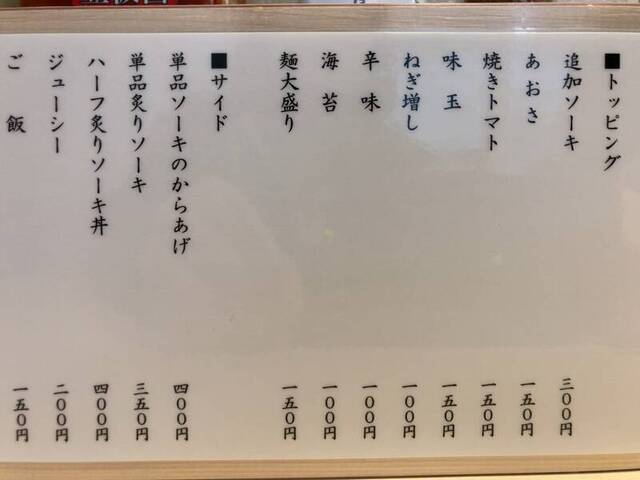 ■トッピング
追加ソーキ 三〇〇円
あおさ 一五〇円
焼きトマト 一五〇円
味玉 一五〇円
ねぎ増し 一〇〇円
辛味 一〇〇円
海苔 一〇〇円
麺大盛り 一五〇円
■サイド
単品ソーキのからあげ 四〇〇円
単品炙りソーキ 三五〇円
ハーフ炙りソーキ丼 四〇〇円
ジューシー 二〇〇円
ご飯 一五〇円